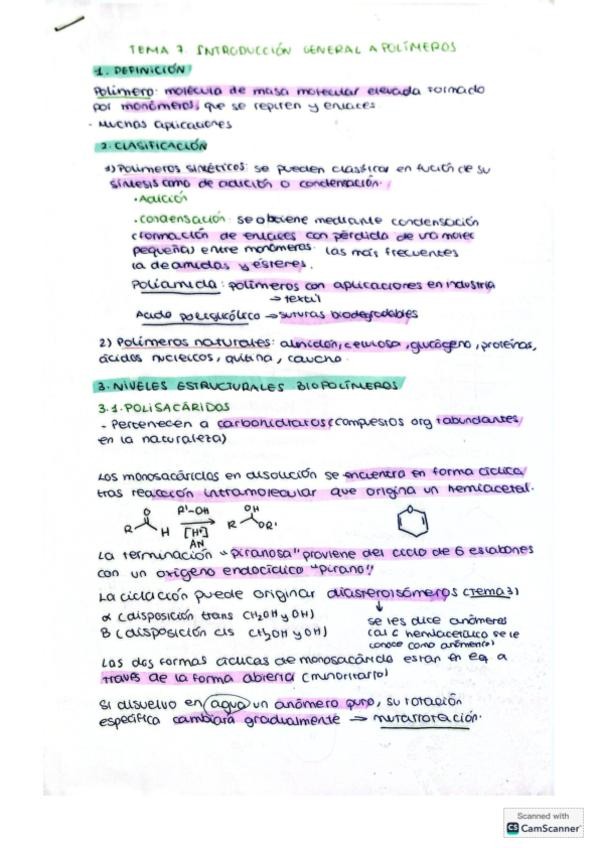 TEMA 7. INTRODUCCIÓN GENERAL A POLÍMEROS
1. DEFINICIÓN
Polímero: molécula de masa molecular elevada formado
por monómeros, que se repiten y enlaces.
- Muchas aplicaciones
2. CLASIFICACIÓN
1) Polímeros sintéticos: se pueden clasificar en fución de su
síntesis como de adición o condensación.
• Adición
• Condensación: se obtiene mediante condensación
(formación de enlaces con pérdida de una molec
pequeña) entre monómeros. Las más frecuentes
la de amidas y ésteres.
Poliamida: polímeros con aplicaciones en industria
→ textil
Acido poliglicólico → suturas biodegradables
2) Polímeros naturales: almidón, celulosa, glucógeno, proteínas,
ácidos nucleicos, quitina, caucho.
3. NIVELES ESTRUCTURALES BIOPOLÍMEROS
3.1. POLISACÁRIDOS
- Pertenecen a carbohidratos (compuestos org + abundantes
en la naturaleza)
Los monosacáridos en disolución se encuentra en forma cíclica
tras reacción intramolecular que origina un hemiacetal.
O R'-OH OH O
R H [H+] R OR'
AN
La terminación "piranosa" proviene del ciclo de 6 eslabones
con un oxígeno endocíclico "pirano".
La ciclación puede originar diasteroisómeros (Tema 3)
α (disposición trans CH2OH y OH)
B (disposición cis CH2OH y OH)
se les dice anómeros
(al C hemiacetálico se le
conoce como anómerico)
Las dos formas cíclicas de monosacárido estan en eq. a
través de la forma abierta (minoritario)
Si disuelvo en agua un anómero puro, su rotación
específica cambiará gradualmente → mutarrotación.
Scanned with
CS CamScanner